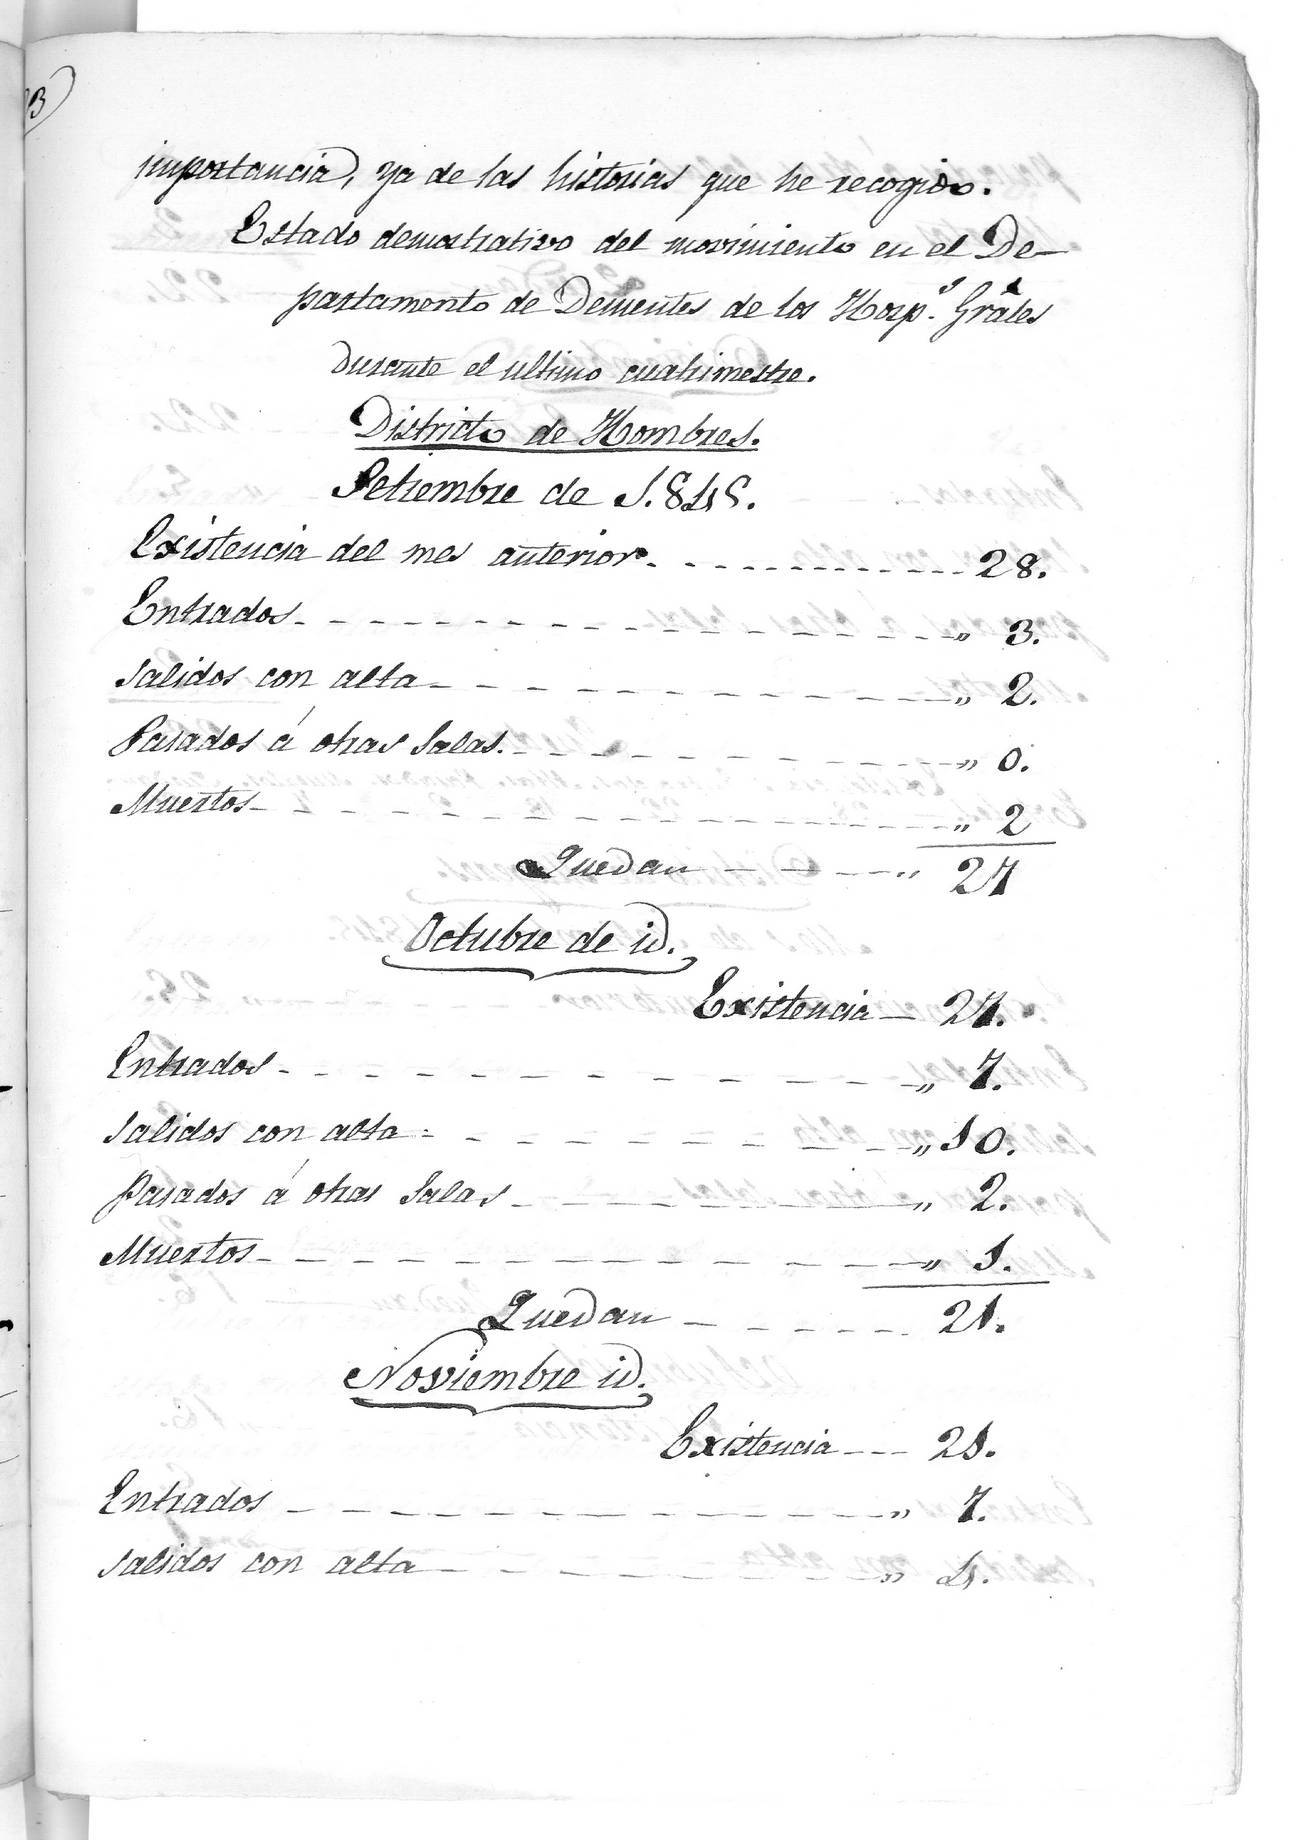 importancia, ya de las historias que he recogido.
Estado demostrativo del movimiento en el De-
partamento de Dementes de los Hosp.s Grales
durante el ultimo cuatrimestre.
Districto de Hombres.
Setiembre de 1.845.
Existencia del mes anterior. - - - - - - - - - - 28.
Entrados - - - - - - - - - - - - - - „ 3.
Salidos con alta - - - - - - - - - - - „ 2.
Pasados á otras Salas. - - - - - - - - - „ 0.
Muertos - - - - - - - - - - - - - - „ 2
Quedan - - - - „ 27
Octubre de id.
Existencia - 27.
Entrados - - - - - - - - - - - - - „ 7.
Salidos con alta - - - - - - - - - - „ 10.
Pasados á otras Salas - - - - - - - - „ 2.
Muertos - - - - - - - - - - - - - „ 1.
Quedan - - - - - 21.
Noviembre id.
Existencia - - - 21.
Entrados - - - - - - - - - - - - - „ 7.
Salidos con alta - - - - - - - - - - „ 4.